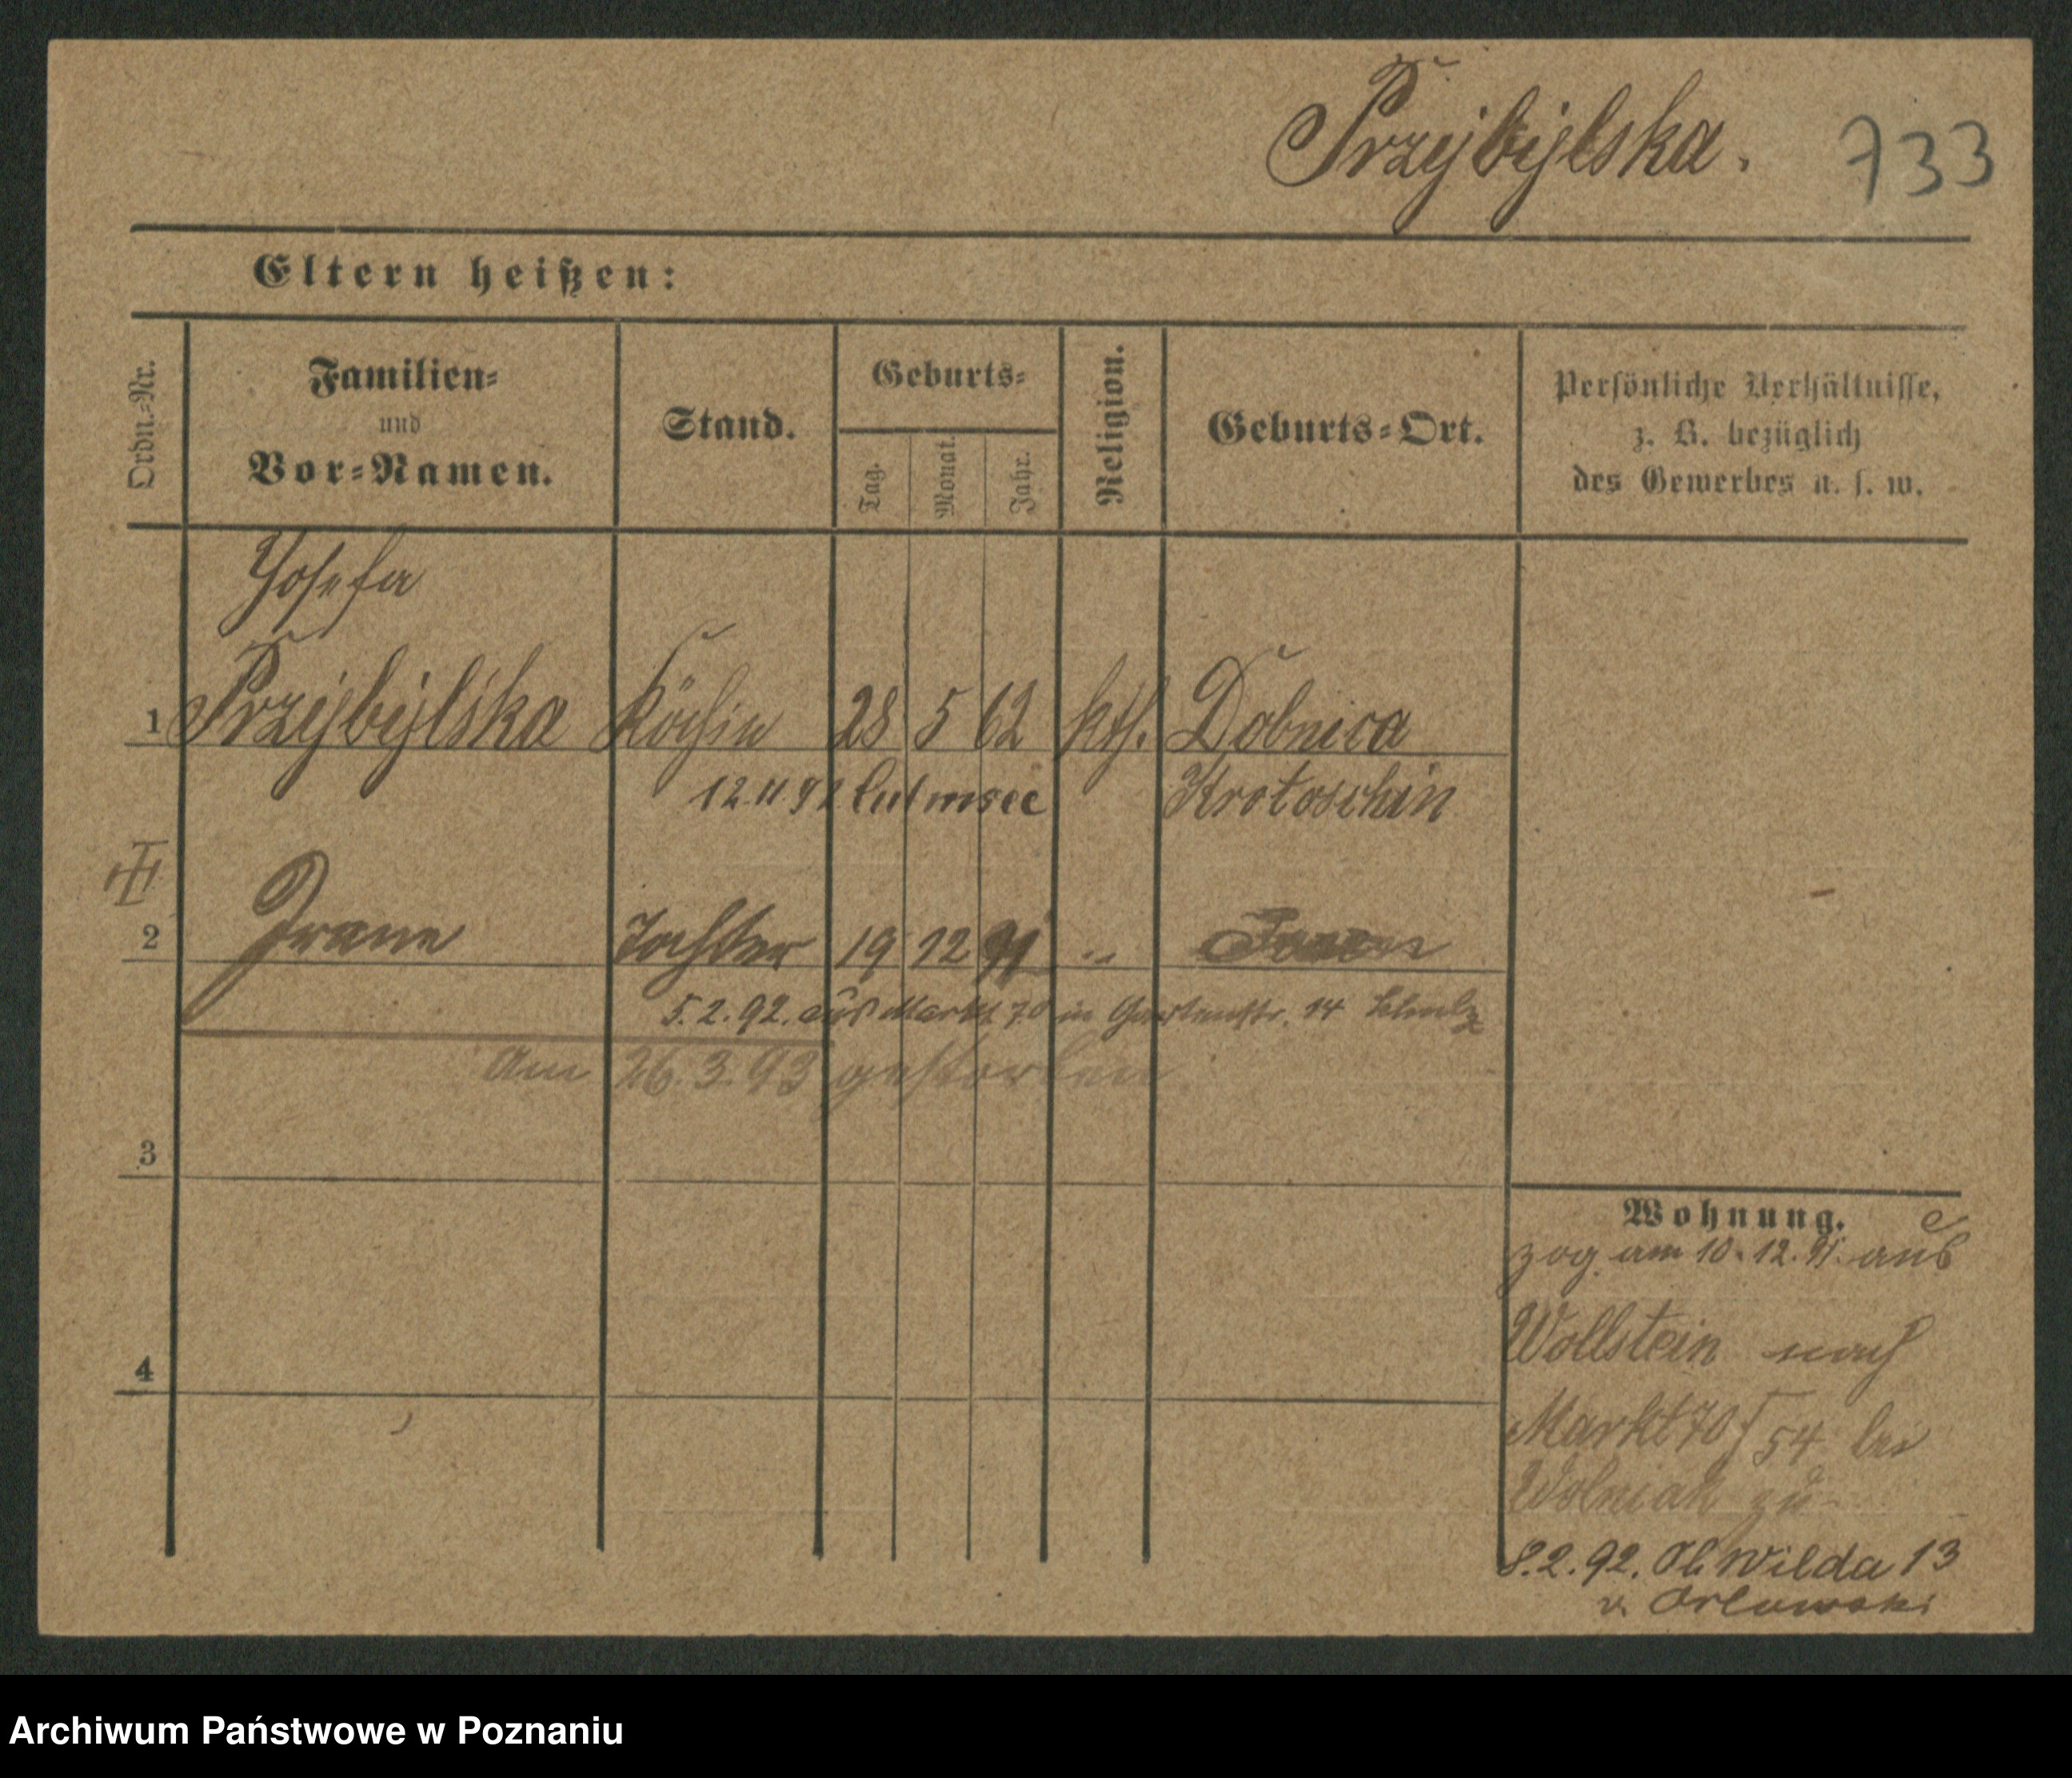 Przybylska. 733
Eltern heißen:
Ordn.=Nr.
Familien=
und
Vor=Namen.
Stand.
Geburts=
Tag.
Monat.
Jahr.
Religion.
Geburts=Ort.
Persönliche Verhältnisse,
z. B. bezüglich
des Gewerbes u. s. w.
Josefa
1 Przybylska Köchin 28 5 62 kth. Dobnica
12.11.92 Culmsee Krotoschin
2 Tochter 19 12 91 "
5.2.92. aus Markt 70 in Gartenstr. 14
Am 26.3.93 gestorben
3
4
Wohnung.
zog am 10.12.91. aus
Wollstein nach
Markt 70 54 bei
Wolniak zu
8.2.92. Ob Wilda 13
v. Orlowski
Archiwum Państwowe w Poznaniu